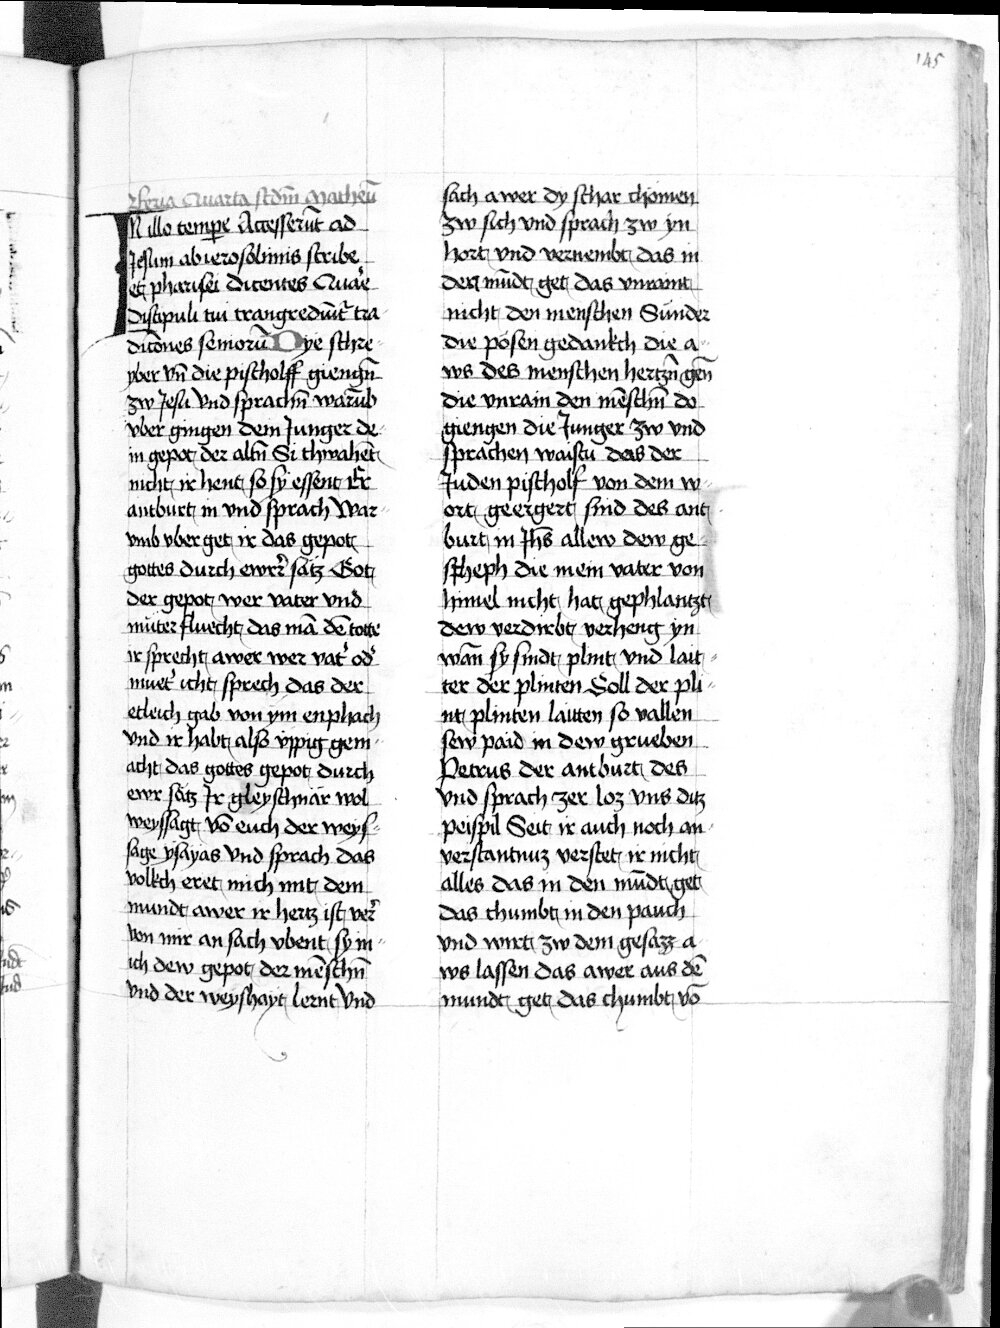 145
Feria Quarta scdm̄ Matheū
IN illo tempe Accesserūt ad
Jesum ab ierosolimis scribe
et pharisei dicentes Quare
Discipuli tui trangrediūt᷑ tra
dicōnes seniorū Dye schre-
yber vn̄ die pischolff giengn̄
zw Jesu vnd sprachn̄ warūb
vber gingen dein Junger de-
in gepot der altn̄ Si thwahēt
nicht ir hent so sy essent Er
antburt in vnd sprach War-
vmb vber get ir das gepot
gottes durch ewrr̄ sätz Got
der gepot wer vater vnd
muter fluecht das mā dē totte
ir sprecht awer wer vat᷑ od᷑
muet᷑ icht sprech das der
etleich gab von ym enphach
vnd ir habt also vppig gem-
acht das gottes gepot durch
ewr sätz Ir gleyschnär wol
weyssagt vō euch der weys-
sage ysayas vnd sprach das
volkch eret mich mit dem
mundt awer ir hertz ist ver᷑
von mir an sach vbent sy m-
ich dew gepot der mēschn̄
vnd der weyshayt lernt vnd
sach awer dy schar chomen
zw sich vnd sprach zw yn
hort vnd vernembt das in
den mūdt get das vnraint
nicht den menschen Sünder
die pösen gedankch die a-
ws des menschen hertzn̄ gen̄
die vnrain den mēschn̄ do
giengen die Junger zw vnd
sprachen waistu das der
Juden pischolf von dem w-
ort geergert sind des ant-
burt in Jhs̄ allew dew ge-
scheph die mein vater von
himel nicht hat gephlantzt
dew verdirbt verheng yn
wan̄ sy sindt plint vnd lait-
ter der plinten Soll der pli-
nt plinten laitten so vallen
sew paid in dew grueben
Petrus der antburt des
vnd sprach zer loz vns ditz
peispil Seit ir auch noch an-
verstantnuz verstet ir nicht
alles das in den mūdt get
das chumbt in den pauch
vnd wirt zw dem gesazz a-
ws lassen das awer aus dē
mundt get das chumbt vō